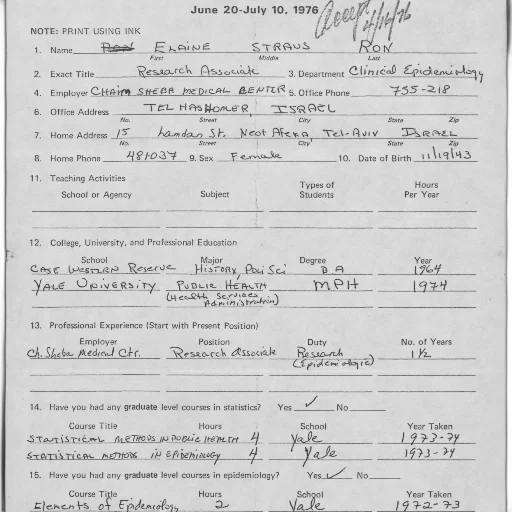 June 20-July 10, 1976
Accept
4/16/76
NOTE: PRINT USING INK
1. Name ELAINE STRAUS RON
First Middle Last
2. Exact Title Research Associate 3. Department Clinical Epidemiology
4. Employer CHAIM SHEBA MEDICAL CENTER 5. Office Phone 755-218
6. Office Address TEL HASHOMER, ISRAEL
No. Street City State Zip
7. Home Address 15 Lamdan St. Neot Afeka, Tel-Aviv ISRAEL
No. Street City State Zip
8. Home Phone 481037 9. Sex Female 10. Date of Birth 11/19/43
11. Teaching Activities
School or Agency Subject Types of Students Hours Per Year
12. College, University, and Professional Education
School Major Degree Year
CASE WESTERN RESERVE HISTORY, Poli Sci B.A 1964
YALE UNIVERSITY PUBLIC HEALTH MPH 1974
(Health Services Administration)
13. Professional Experience (Start with Present Position)
Employer Position Duty No. of Years
Ch. Sheba Medical Ctr. Research Associate Research 1½
(Epidemiologic)
14. Have you had any graduate level courses in statistics? Yes ✓ No
Course Title Hours School Year Taken
STATISTICAL METHODS IN PUBLIC HEALTH 4 Yale 1973-74
STATISTICAL METHODS IN EPIDEMIOLOGY 4 Yale 1973-74
15. Have you had any graduate level courses in epidemiology? Yes ✓ No
Course Title Hours School Year Taken
Elements of Epidemiology 2 Yale 1972-73